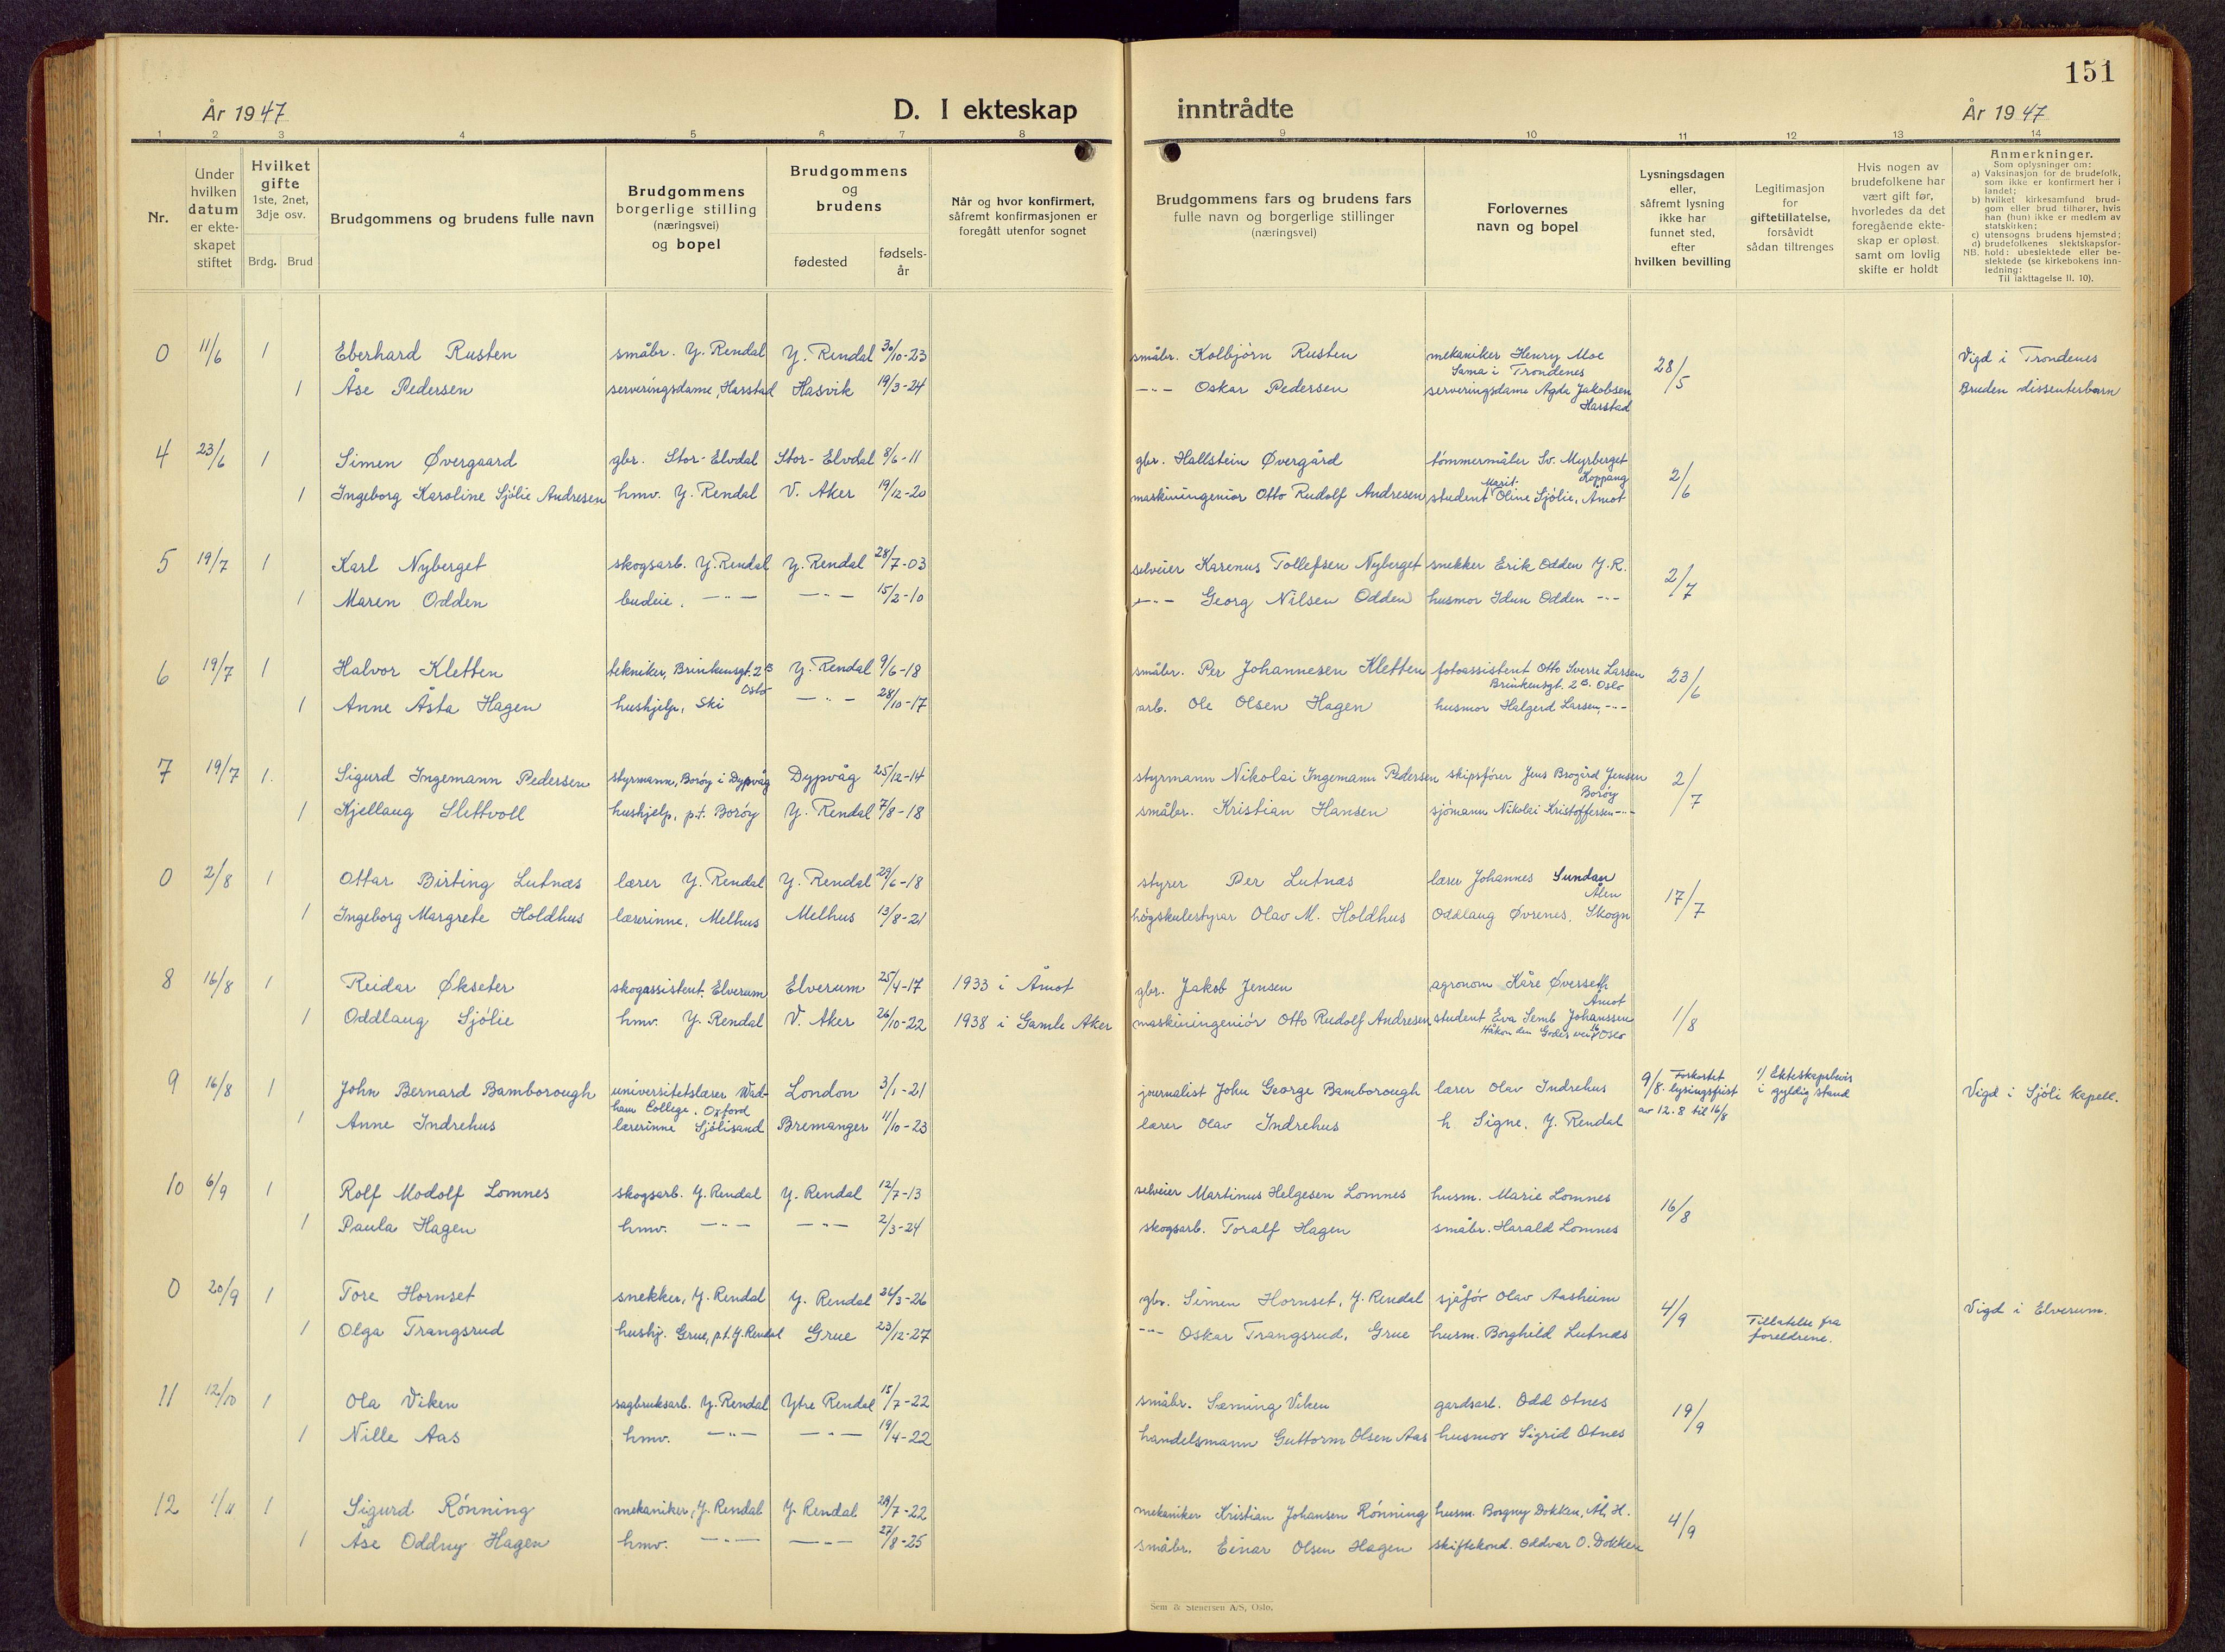 151
År 1947
D. I ekteskap inntrådte
År 1947
1 2 3 4 5 6 7 8 9 10 11 12 13 14
Nr.
Under hvilken datum er ekte- skapet stiftet
Hvilket gifte 1ste, 2net, 3dje osv. Brdg. Brud
Brudgommens og brudens fulle navn
Brudgommens borgerlige stilling (næringsvei) og bopel
Brudgommens og brudens fødested fødsels- år
Når og hvor konfirmert, såfremt konfirmasjonen er foregått utenfor sognet
Brudgommens fars og brudens fars fulle navn og borgerlige stillinger (næringsvei)
Forlovernes navn og bopel
Lysningsdagen eller, såfremt lysning ikke har funnet sted, efter hvilken bevilling
Legitimasjon for giftetillatelse, forsåvidt sådan tiltrenges
Hvis nogen av brudefolkene har vært gift før, hvorledes da det foregående ekte- skap er opløst. samt om lovlig skifte er holdt
Anmerkninger.
Som oplysninger om:
a) Vaksinasjon for de brudefolk, som ikke er konfirmert her i landet;
b) hvilket kirkesamfund brud- gom eller brud tilhører, hvis han (hun) ikke er medlem av statskirken;
c) utensogns brudens hjemsted;
d) brudefolkenes slektskapsfor- hold: ubeslektede eller be- slektede (se kirkebokens inn- ledning:
NB. Til iakttagelse II. 10).
0 11/6 1 Eberhard Rusten småbr. Y. Rendal Y. Rendal 30/10-23 småbr. Kolbjörn Rusten mekaniker Henry Moe Sama i Trondenes 28/5 Vigd i Trondenes
1 Åse Pedersen serveringsdame, Harstad Hasvik 19/3-24 -"- Oskar Pedersen serveringsdame Agda Jakobsen Harstad Bruden dissenterbarn
4 23/6 1 Simen Øvergaard gbr. Stor-Elvdal Stor-Elvdal 8/6-11 gbr. Hallstein Øvergård tømmermåler Sv. Myrberget Koppang 2/6
1 Ingeborg Karoline Sjölie Andresen hmv. Y. Rendal V. Aker 19/12-20 maskiningeniør Otto Rudolf Andresen student Marit Oline Sjölie, Åmot
5 19/7 1 Karl Nyberget skogsarb. Y. Rendal Y. Rendal 28/7-03 selveier Karenus Tollefsen Nyberget snekker Erik Odden Y.R. 2/7
1 Maren Odden budeie. -"- -"- 15/2-10 -"- Georg Nilsen Odden husmor Idun Odden -"-
6 19/7 1 Halvor Kletten tekniker, Brinkensgt. 2B Oslo Y. Rendal 9/6-18 småbr. Per Johannesen Kletten fotoassistent Otto Sverre Larsen Brinkensgt. 2B. Oslo 23/6
1 Anne Åsta Hagen hushjelp, Ski -"- 28/10-17 arb. Ole Olsen Hagen husmor Halgerd Larsen, -"-
7 19/7 1. Sigurd Ingemann Pedersen styrmann, Boröy i Dypvåg Dypvåg 25/12-14 styrmann Nikolai Ingemann Pedersen skipsfører Jens Brogård Jensen Boröy 2/7
1 Kjellaug Slettvoll hushjelp, p.t. Boröy Y. Rendal 7/8-18 småbr. Kristian Hansen sjömann Nikolai Kristoffersen -"-
0 2/8 1 Ottar Birting Lutnæs lærer Y. Rendal Y. Rendal 29/6-18 styrer Per Lutnæs lærer Johannes Sundan Ålen 17/7
1 Ingeborg Margrete Holdhus lærerinne, Melhus Melhus 13/8-21 högskulestyrar Olav M. Holdhus Oddlaug Øvrenes, Skogn
8 16/8 1 Reidar Økseter skogassistent. Elverum Elverum 25/4-17 1933 i Åmot gbr. Jakob Jensen agronom Kåre Øverseth Åmot 1/8
1 Oddlaug Sjölie hmv. Y. Rendal V. Aker 26/10-22 1938 i Gamle Aker maskiningeniör Otto Rudolf Andresen student Eva Semb Johanssen Håkon den Godes vei 16 Oslo
9 16/8 1 John Bernard Bamborough universitetslærer Wad- ham College. Oxford London 3/1-21 journalist John George Bamborough lærer Olav Indrehus 9/8. Forkortet lysingsfrist av 12.8 til 16/8 1/ Ekteskapsbevis i gyldig stand Vigd i Sjöli kapell.
1 Anne Indrehus lærerinne Sjölisand Bremanger 11/10-23 lærer Olav Indrehus h. Signe, Y. Rendal
10 6/9 1 Rolf Modolf Lomnes skogsarb. Y. Rendal Y. Rendal 12/7-13 selveier Martinus Helgesen Lomnes husm. Marie Lomnes 16/8
1 Paula Hagen hmv. -"- -"- 2/3-24 skogsarb. Toralf Hagen småbr. Harald Lomnes
0 20/9 1 Tore Hornset snekker, Y. Rendal Y. Rendal 24/3-26 gbr. Simen Hornset, Y. Rendal sjåfør Olav Aasheim 4/9 Vigd i Elverum.
1 Olga Trangsrud hushj. Grue, p.t. Y. Rendal Grue 23/12-27 -"- Oskar Trangsrud, Grue husm. Borghild Lutnæs Tillatelse fra foreldrene.
11 12/10 1 Ola Viken sagbruksarb. Y. Rendal Ytre Rendal 15/7-22 småbr. Sæming Viken gardsarb. Odd Otnes 19/9
1 Nille Aas hmv. -"- -"- 19/4-22 handelsmann Guttorm Olsen Aas husmor Sigrid Otnes
12 1/11 1 Sigurd Rönning mekaniker, Y. Rendal Y. Rendal 29/7-22 mekaniker Kristian Johansen Rönning husm. Borgny Dokken, Ål, H. 4/9
1 Åse Oddny Hagen hmv. -"- -"- 27/8-25 småbr. Einar Olsen Hagen skiftekond. Oddvar O. Dokken
Sem & Stenersen A/S, Oslo.